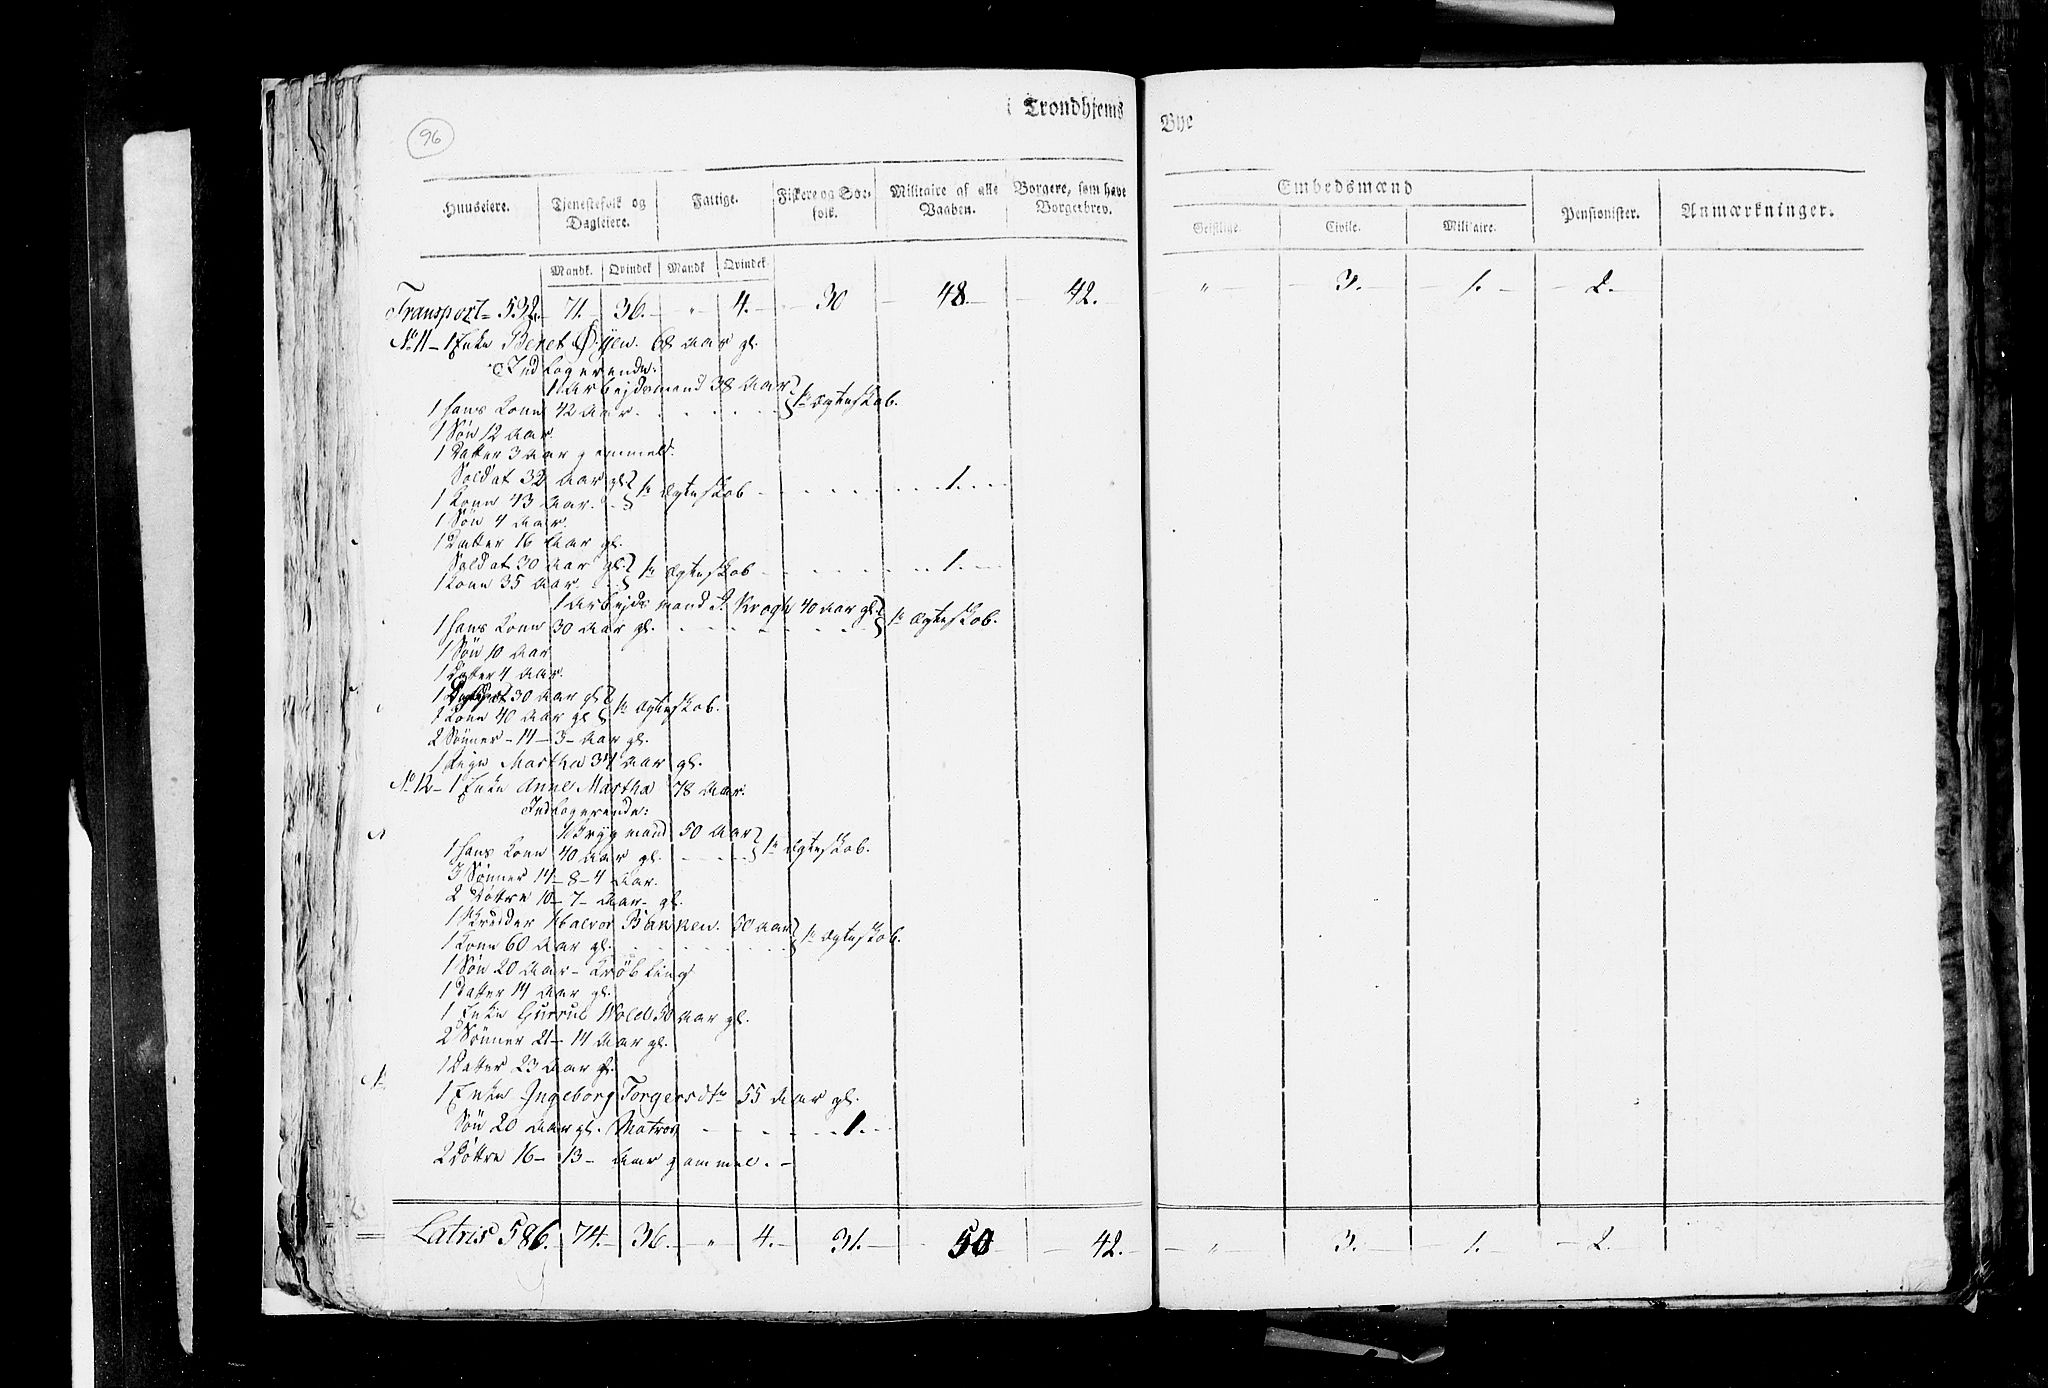 96
i Trondhjems Bye
Huuseiere. Tjenestefolk og Dagleiere. Fattige. Fiskere og Søefolk. Militaire af alle Vaaben. Borgere, som have Borgerbrev. Embedsmænd Pensionister. Anmærkninger.
Geistlige. Civile. Militaire.
Mandk. Qvindek Mandk Qvindek
Transport 532. 71. 36. " 4. 30 48. 42. " 3. 1. 2.
No 11 - 1 Enke Beret Øyen. 68 Aar gl.
Indlogerende.
1 Arbejdsmand 38 Aar
1 hans Kone 42 Aar. 1te Ægteskab.
1 Søn 12 Aar.
1 Datter 3 Aar gammel.
Soldat 32 Aar gl.
1 Kone 43 Aar. 1te Ægteskab 1.
1 Søn 4 Aar.
1 Datter 16 Aar gl.
Soldat 30 Aar gl.
1 Kone 35 Aar 1te Ægteskab 1.
1 Arbejdsmand P. Krogh 40 Aar gl.
1 hans Kone 30 Aar gl. 1te Ægteskab.
1 Søn 10 Aar
1 Datter 4 Aar.
1 30 Aar gl.
1 Kone 40 Aar gl. 1te Ægteskab.
2 Sønner - 14 - 3 - Aar gl.
1 Pige Martha 34 Aar gl.
No 12 - 1 Enke Anne Martha 78 Aar.
Indlogerende:
1 Brygmand 50 Aar
1 hans Kone 40 Aar gl. 1te Ægteskab.
3 Sønner 14 - 8 - 4 Aar.
2 Døttre 10 - 7 - Aar - gl.
1 Halvor Bakken. 50 Aar
1 Kone 60 Aar gl. 1te Ægteskab.
1 Søn 20 Aar - Krøbling
1 Datter 14 Aar gl.
1 Enke Gurru Wold 50 Aar gl.
2 Sønner 21 - 14 Aar gl.
1 Datter 23 Aar gl.
1 Enke Ingeborg Torgersdtr 55 Aar gl.
Søn 20 Aar gl. Matros 1.
2 Døttre 16 - 13 - Aar gammel. -
Latris 586. 74. 36. " 4. 31. 50 42. " 3. 1. 2.